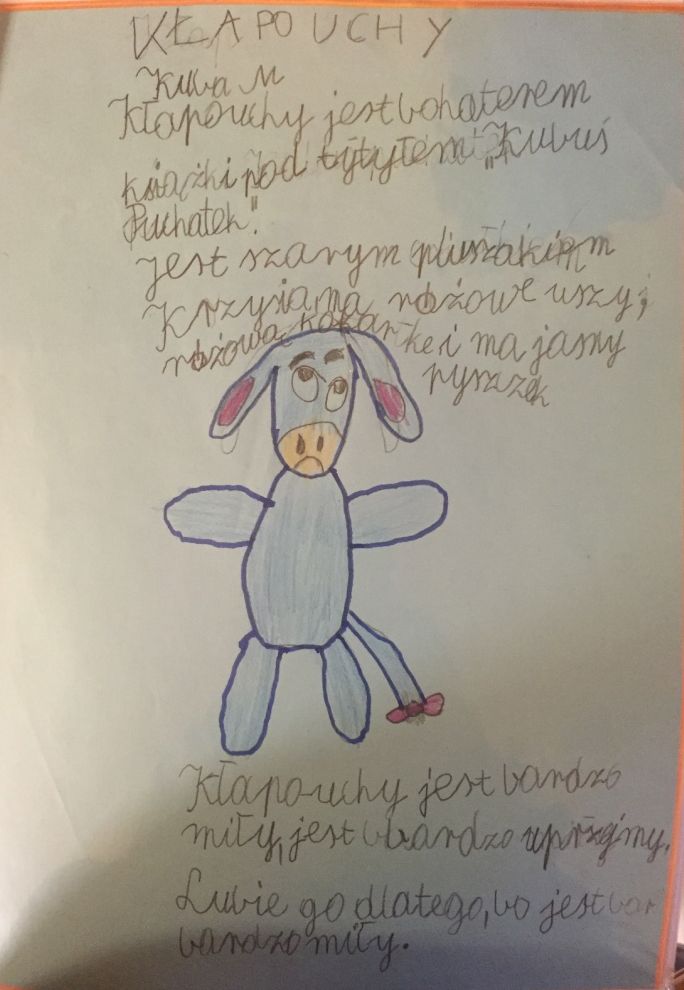 KŁAPOUCHY
Kuba M
Kłapouchy jest bohaterem
książki pod tytyłem "Kubuś
Puchatek".
Jest szarym pluszakiem
Krzysia, ma różowe uszy,
różową kokardkę i ma jasny
pyszczek
Kłapouchy jest bardzo
miły, jest bardzo uprzejmy.
Lubie go dlatego, bo jest bar
bardzo miły.